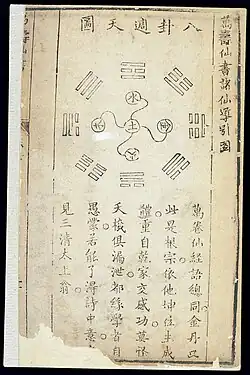 萬壽仙書諸仙導引圖
八卦週天圖
水
萬卷仙經語總同金丹只
此是根宗依他坤位生成
體重自乾家交感功莫怪
天機俱漏泄都緣學者自
愚蒙若能了得詩中意
見三清太上翁